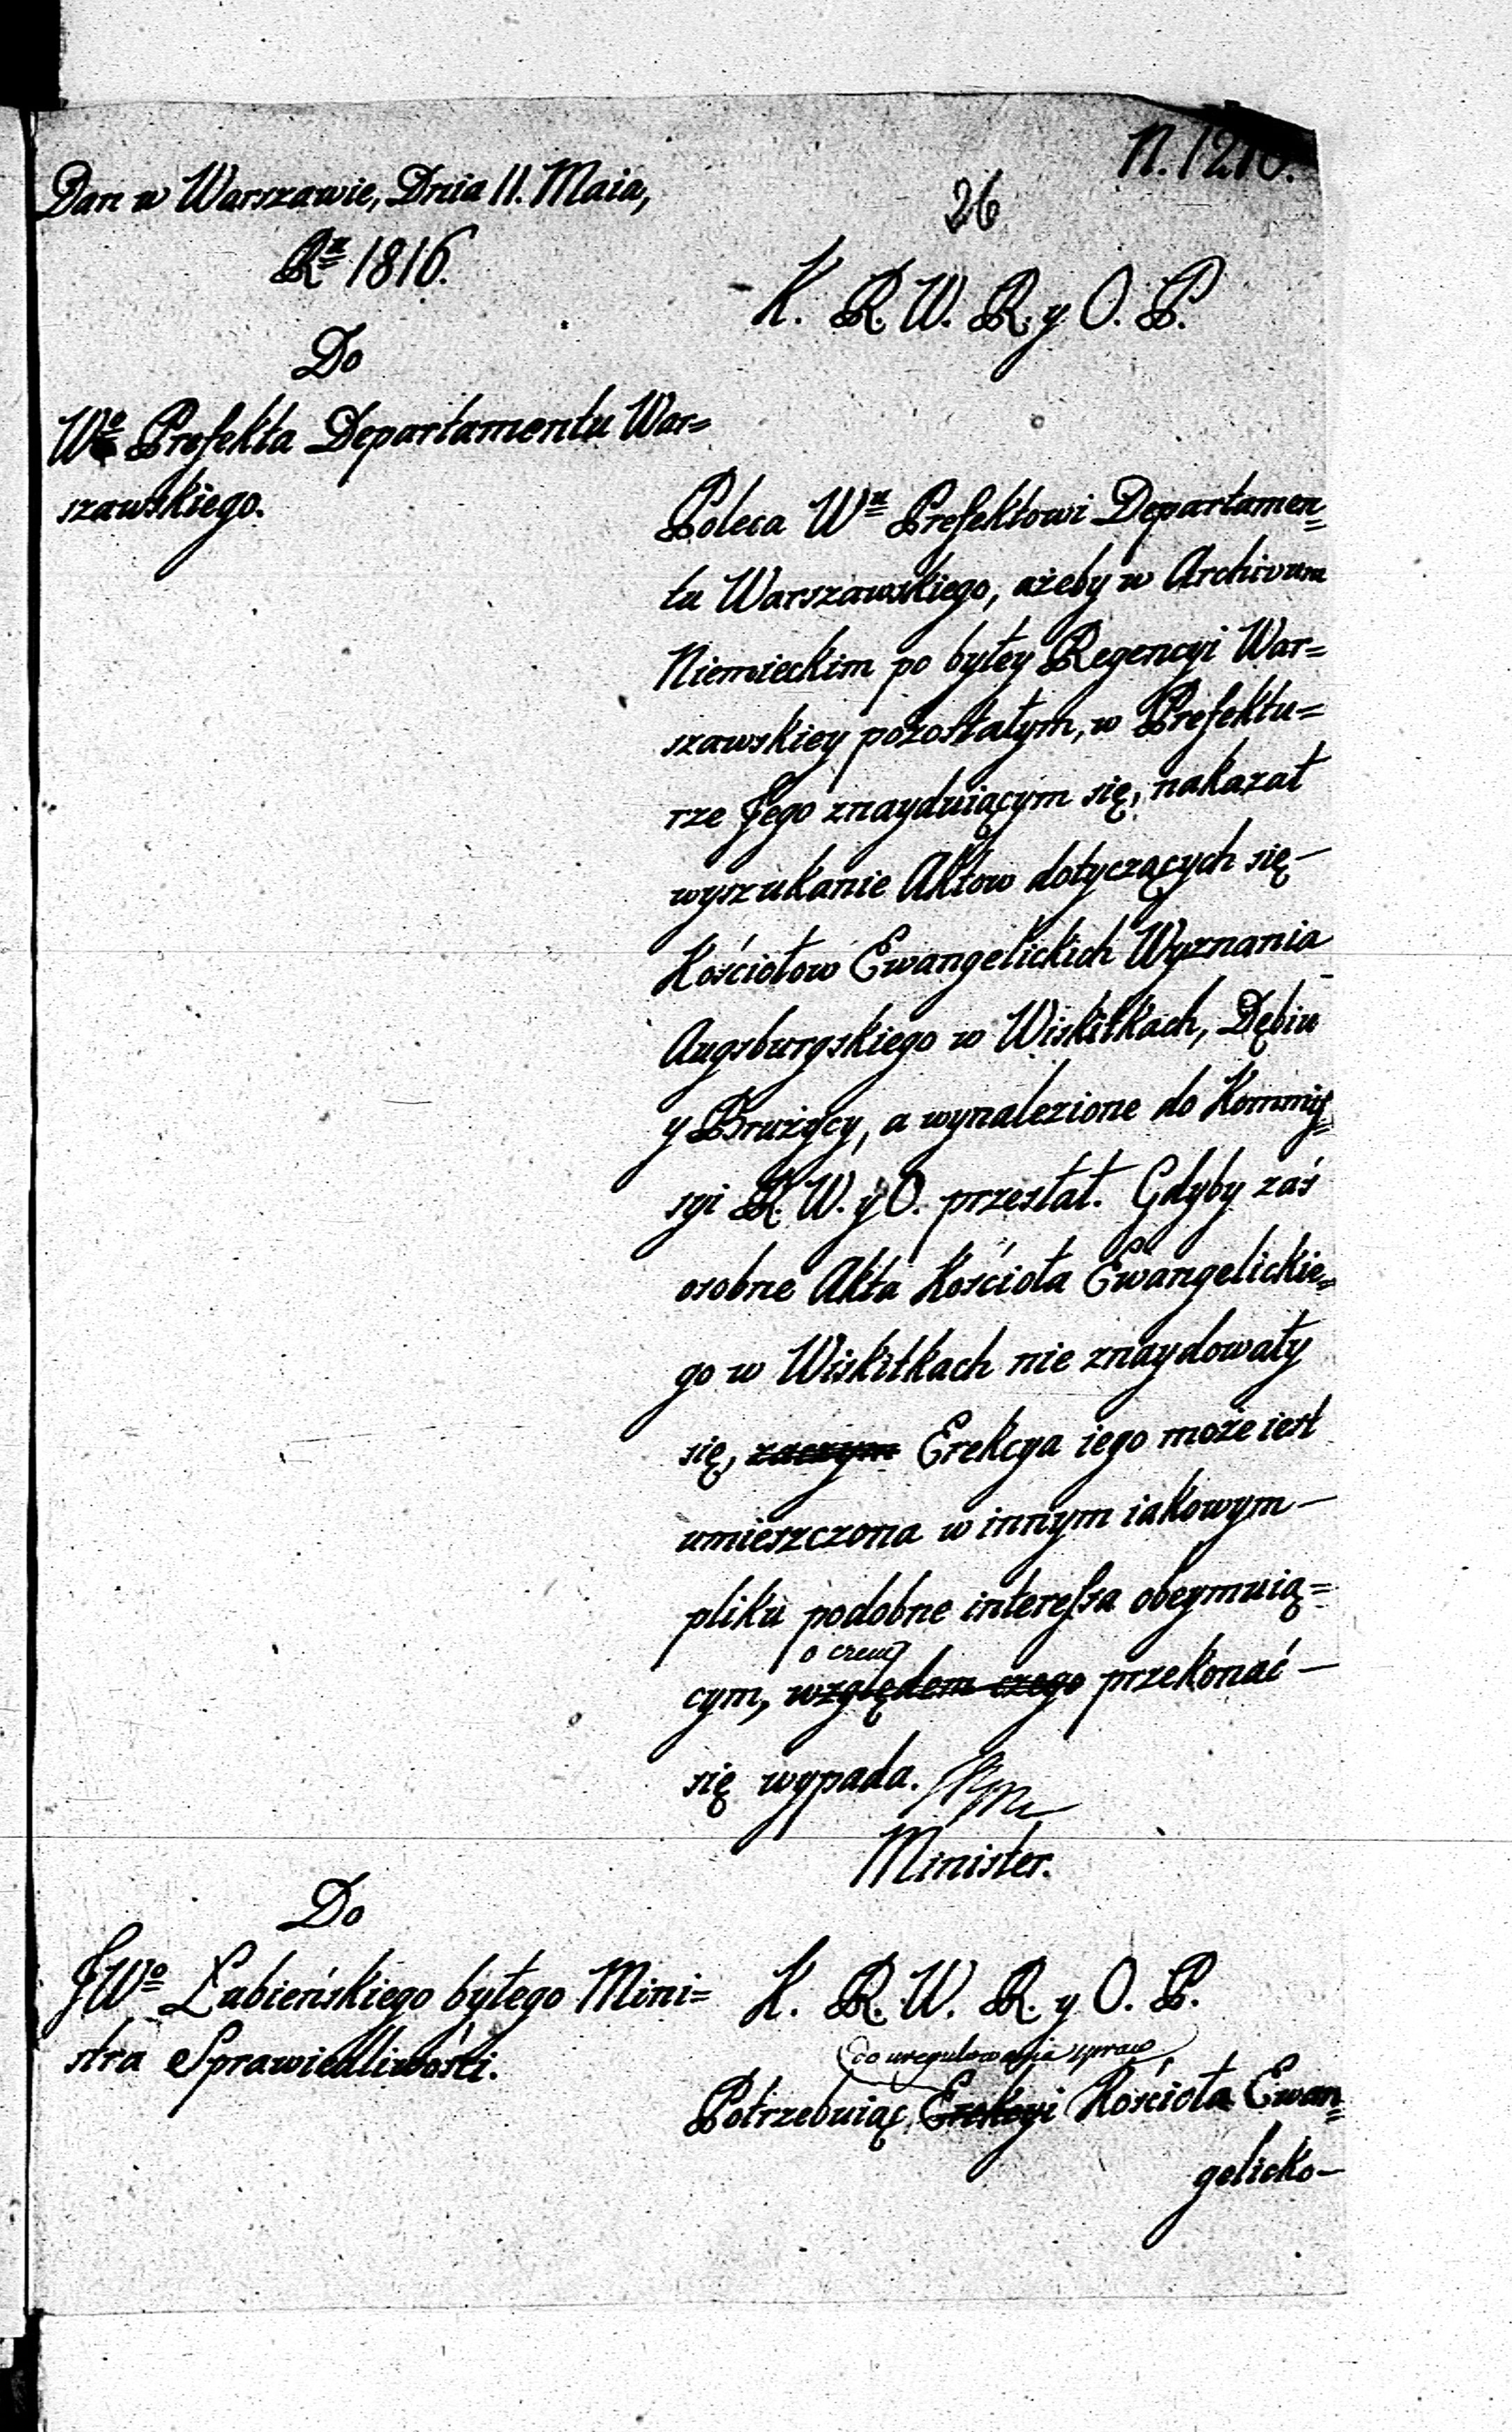 N. 1210.
26
Dan w Warszawie, Dnia 11. Maia,
Rᵘ 1816.
Do
Wº Prefekta Departamentu War=
szawskiego.
K. R. W. R. y O. P.
Poleca Wᵘ Prefektowi Departamen=
tu Warszawskiego, ażeby w Archivum
Niemieckim po byłey Regencyi War=
szawskiey pozostałym, w Prefektu=
rze Jego znayduiącym się, nakazał
wyszukanie Aktow dotyczących się —
Kościołow Ewangelickich Wyznania
Augsburgskiego w Wiskitkach, Dębiu
y Brużycy, a wynalezione do Kommis=
syi R. W. y O. przesłał. Gdyby zaś
osobne Akta Kościoła Ewangelickie=
go w Wiskitkach nie znaydowały
się, zaczym Erekcya iego może iest
umieszczona w innym iakowym —
pliku podobne interessa obeymuią=
o czem
cym, względem czego przekonać —
się wypada.
Minister.
Do
JWº Łubieńskiego byłego Mini=
stra Sprawiedliwości.
K. R. W. R. y O. P.
do uregulowania spraw
Potrzebuiąc Erekcyi Kościoła Ewan=
gelicko—